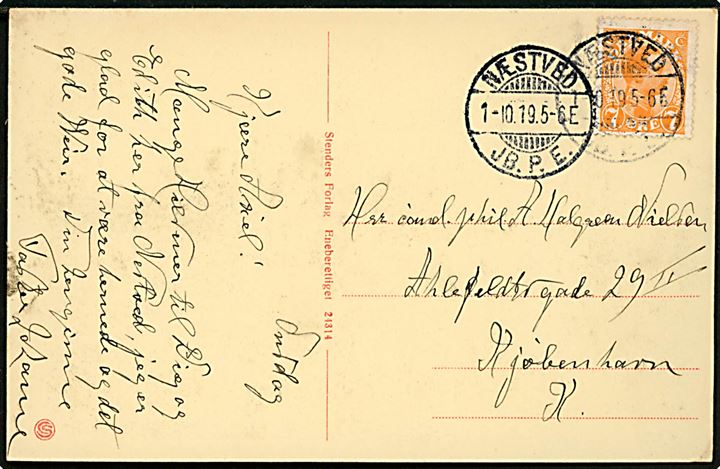 NÆSTVED
1-10.19.5-6E
JB. P. E.
NÆSTVED
19.5-6E
7 ØRE 7
Onsdag
Kjære Aksel!
Mange Hilsner til Dig og
Edith her fra Nestved, jeg er
glad for at være hernede og det
gode Veir. Din hengivne
Johanne
Stenders Forlag Eneberettiget 24314
Herr cand. phil A. Malgreen Nielsen
Ahlefeldtsgade 29 II
Kjøbenhavn
K.